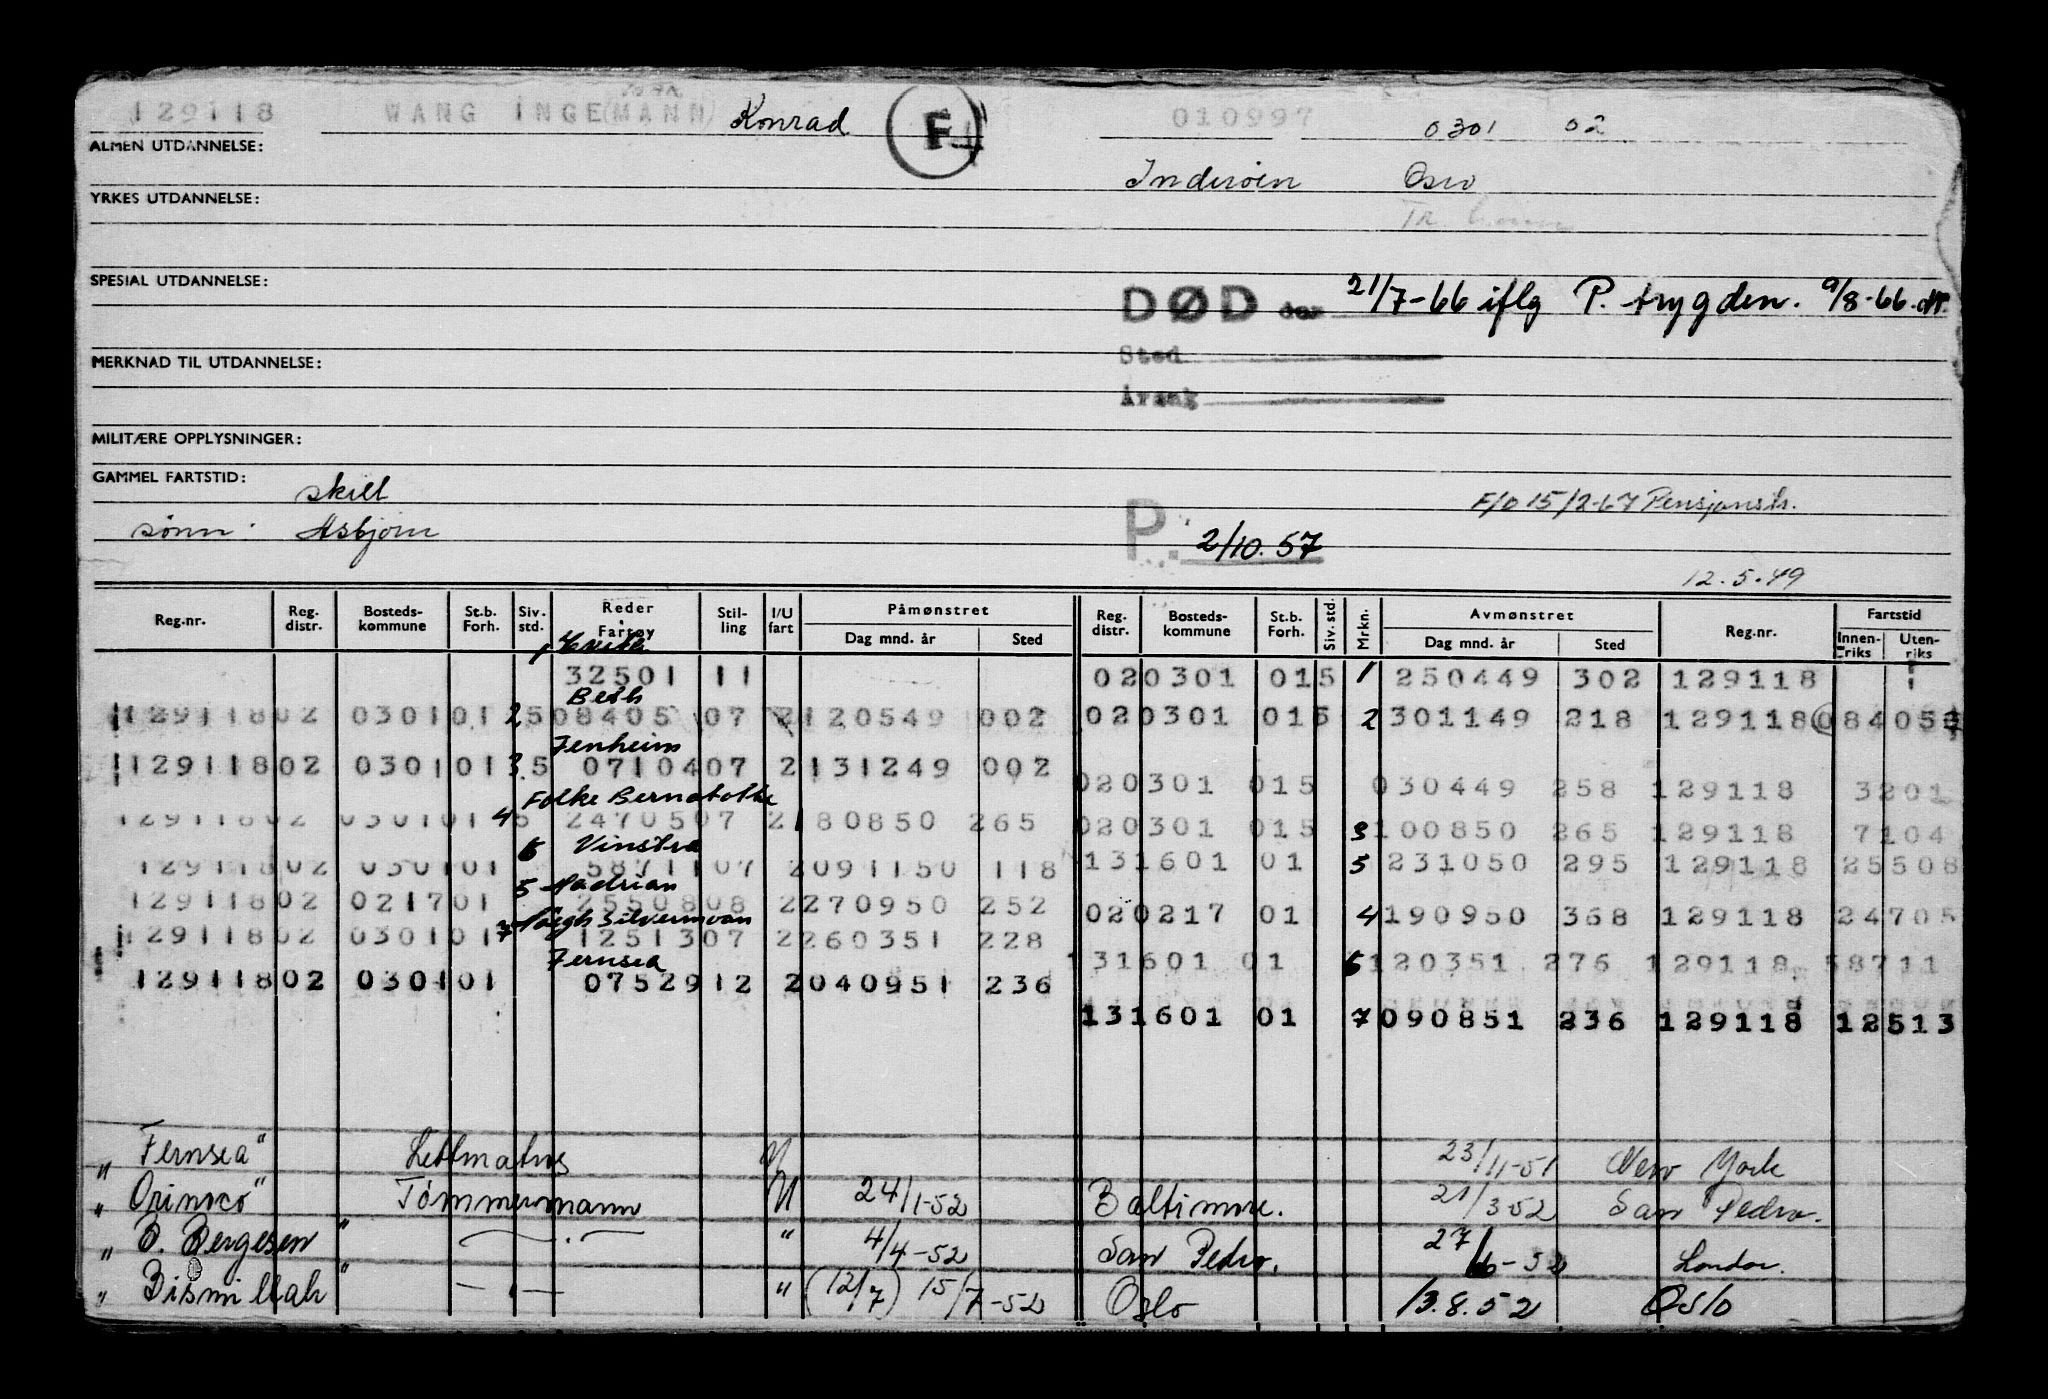 129118 WANG INGE(MANN) Konrad F 010997 0301 02
ALMEN UTDANNELSE:
Inderöen Oslo
YRKES UTDANNELSE:
SPESIAL UTDANNELSE:
DØD den 21/7-66 iflg P. trygden. 9/8-66.
Sted
Årsak
MERKNAD TIL UTDANNELSE:
MILITÆRE OPPLYSNINGER:
GAMMEL FARTSTID:
skilt
F/O 15/2-67 Pensjonstr.
sønn: Asbjørn
P. 2/10.57
12.5.49
Reg.nr. Reg. distr. Bosteds-kommune St.b. Forh. Siv. std. Reder Fartøy Stil-ling I/U fart Påmønstret Dag mnd. år Sted Reg. distr. Bosteds-kommune St.b. Forh. Siv. std. Mrkn. Avmønstret Dag mnd. år Sted Reg.nr. Fartstid Innen-riks Uten-riks
1
32501 11 020301 015 1 250449 302 129118
Beth
129118 02 0301 01 2 5 08405 07 2 120549 002 020301 015 2 301149 218 129118 08405
Fenheim
129118 02 0301 01 3 5 07104 07 2 131249 002
020301 015 030449 258 129118 3201
Folke Bernadotte
129118 02 0301 01 4 5 24705 07 2 180850 265
020301 015 3 100850 265 129118 7104
6 Vinstra
129118 02 0301 01 58711 07 2 091150 118
131601 01 5 231050 295 129118 25508
5 Hadrian
129118 02 0217 01 25508 08 2 270950 252
020217 01 4 190950 368 129118 24705
7 Høegh Silvermoon
129118 02 0301 01 12513 07 2 260351 228
131601 01 6 120351 276 129118 58711
Fernsea
129118 02 0301 01 07529 12 2 040951 236
131601 01 7 090851 236 129118 12513
„Fernsea" Lettmatros U 23/11-51 New York
„Orinoco" Tømmermann U 24/1-52 Baltimore. 21/3 52 San Pedro.
„B. Bergesen" — " — " 4/4-52 San Pedro. 27/6-52 London.
„Bismillah" — " — " (12/7) 15/7-52 Oslo 13.8.52 Oslo